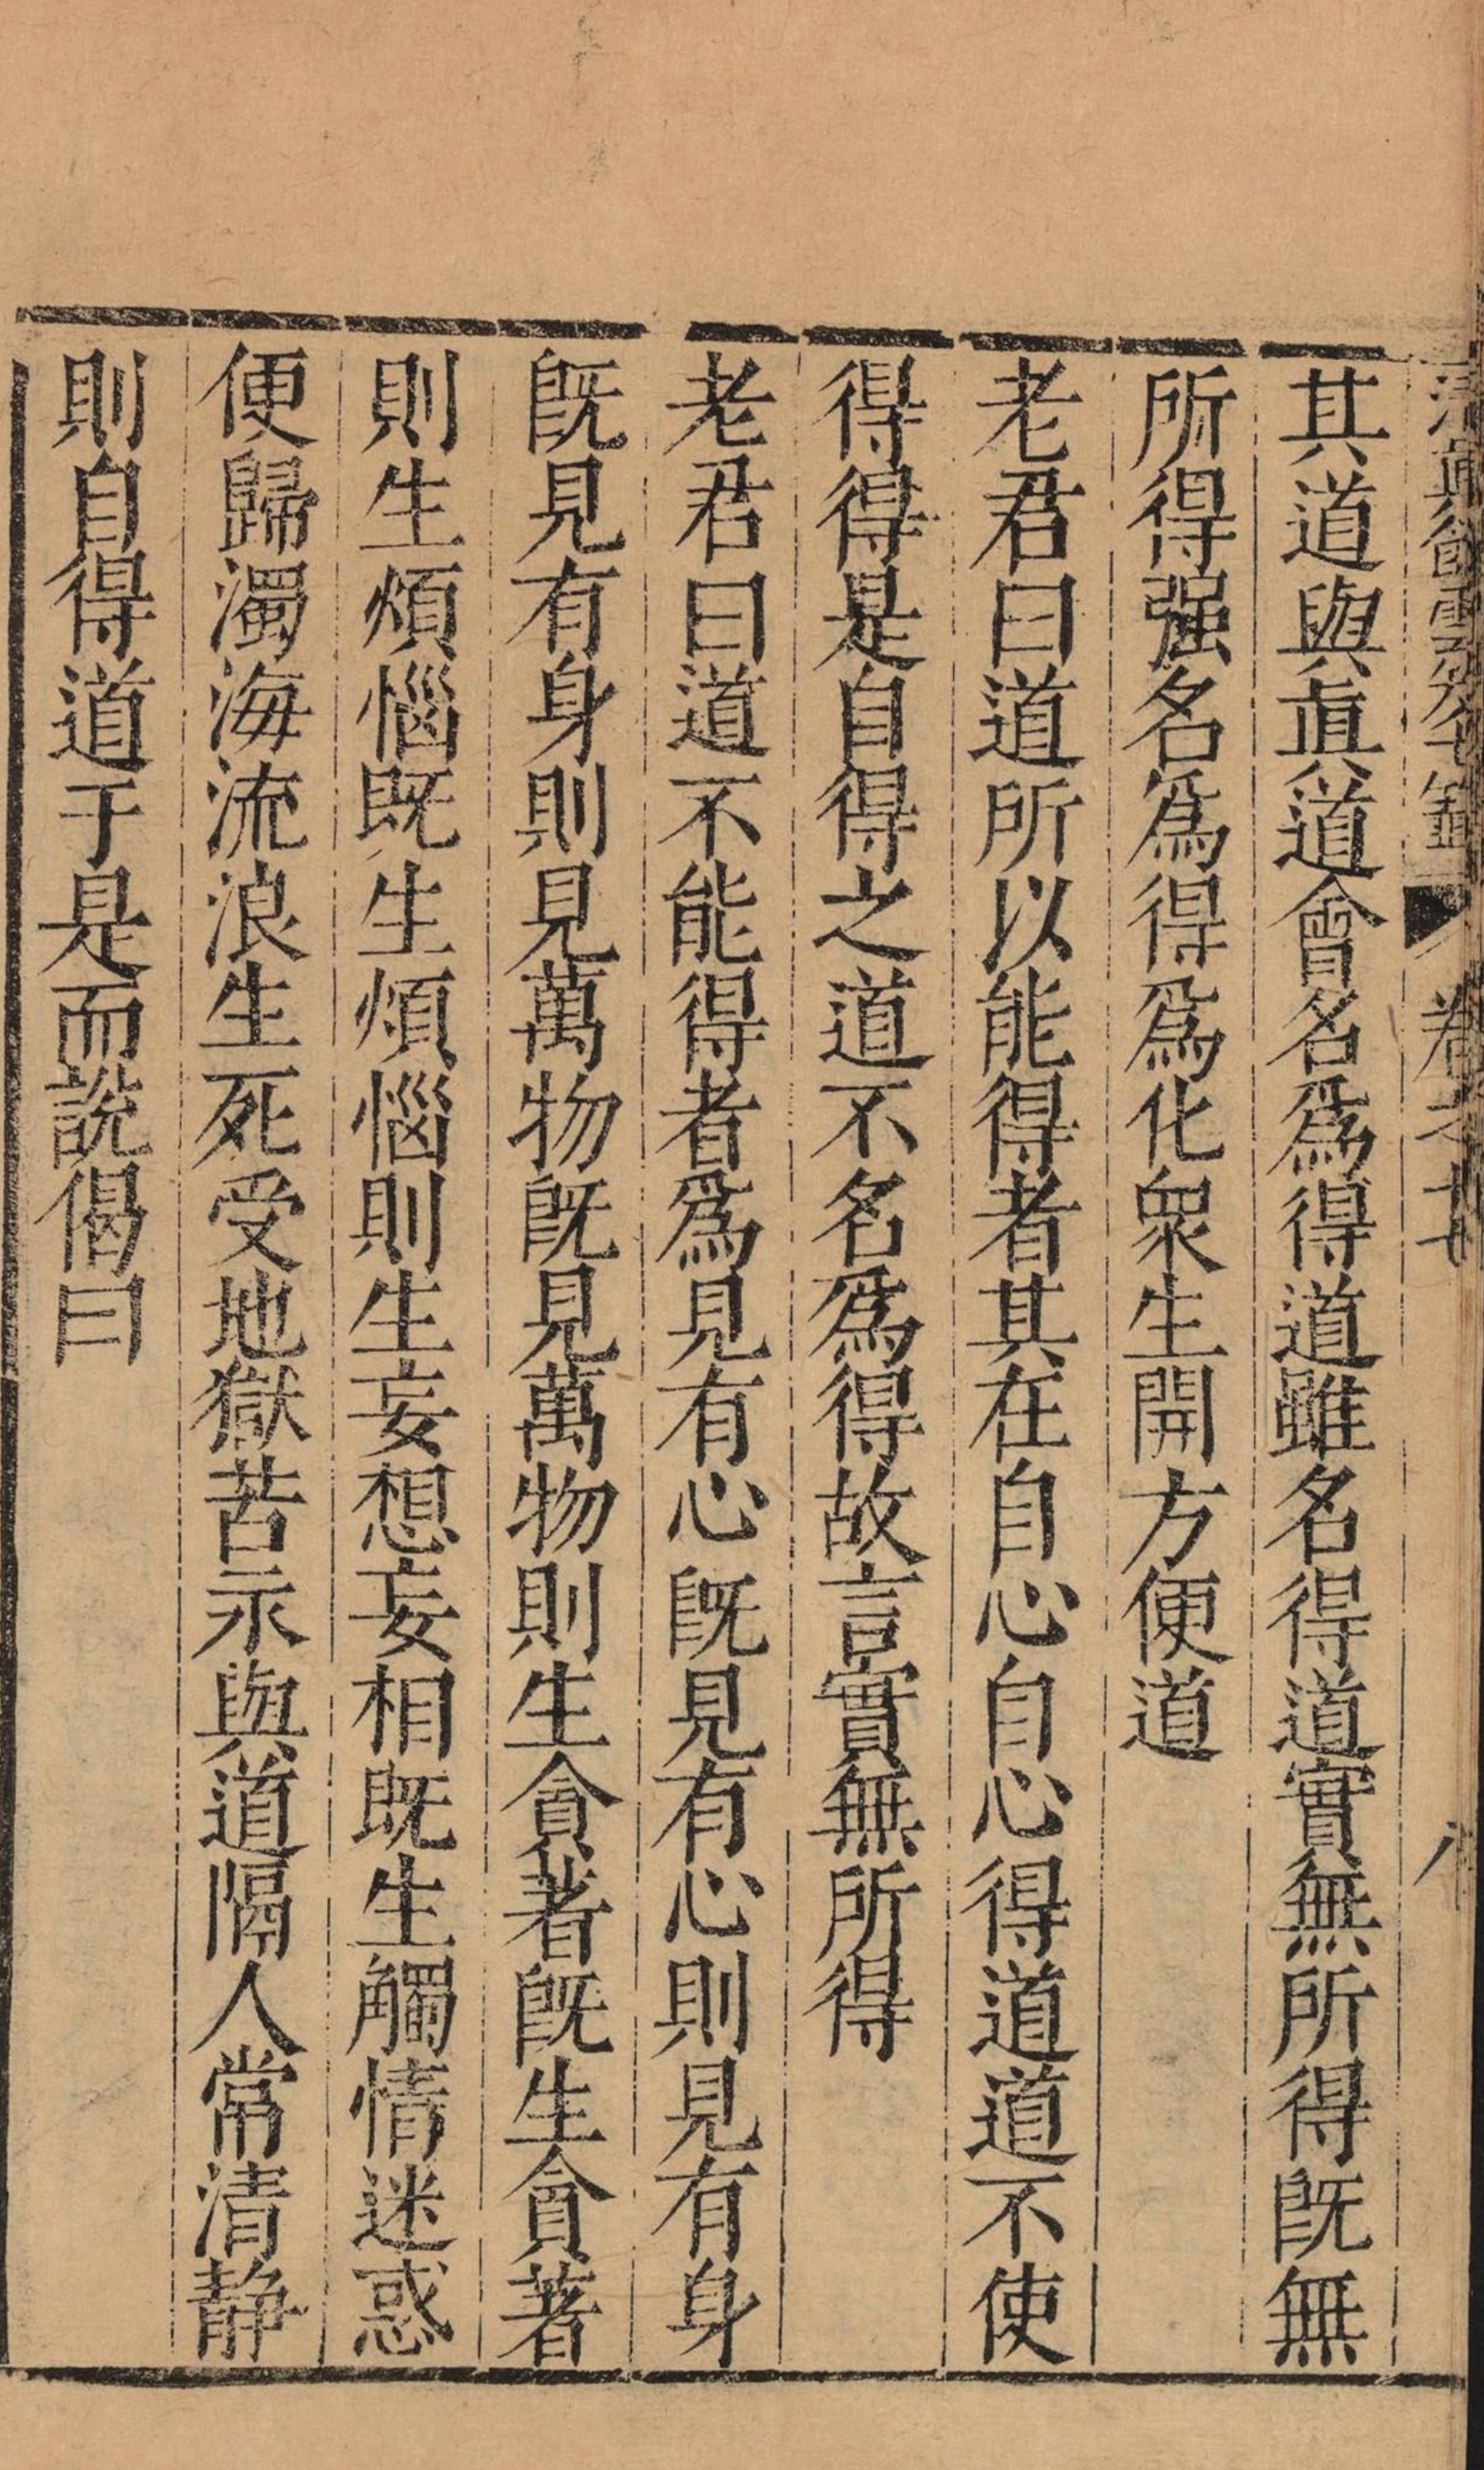 卷之十七
其道與眞道會名爲得道雖名得道實無所得旣無
所得强名爲得爲化衆生開方便道
老君曰道所以能得者其在自心自心得道道不使
得得是自得之道不名爲得故言實無所得
老君曰道不能得者爲見有心旣見有心則見有身
旣見有身則見萬物旣見萬物則生貪著旣生貪著
則生煩惱既生煩惱則生妄想妄相既生觸情迷惑
便歸濁海流浪生死受地獄苦永與道隔人常清静
則自得道于是而說偈曰